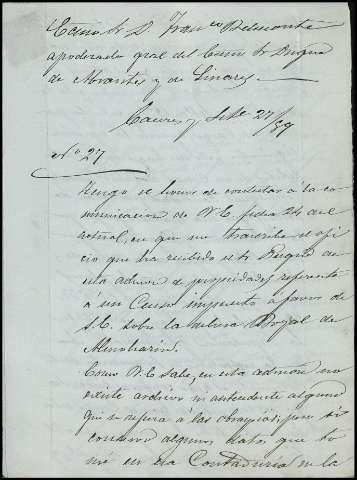 Excmo. Sr. D. Francco Belmonte
apoderado gral del Excmo Sr Duque
de Abrantes y de Linares.
Caceres y Sete 27/59
No 27
Tengo el honor de contestar á la co-
municacion de V.E. fecha 24 del
actual, en que me trascribe el ofi-
cio que ha recibido el Sr Duque de
esta admon de propiedades referente
á un Censo impuesto a favor de
S.E. sobre la dehesa Boyal de
Almoharin.
Como V.E. sabe, en esta admon no
existe archivo ni antecedente alguno
que se refiera á las obras pias, pero si
conservo algunos datos que to-
mé en esa Contaduria en la